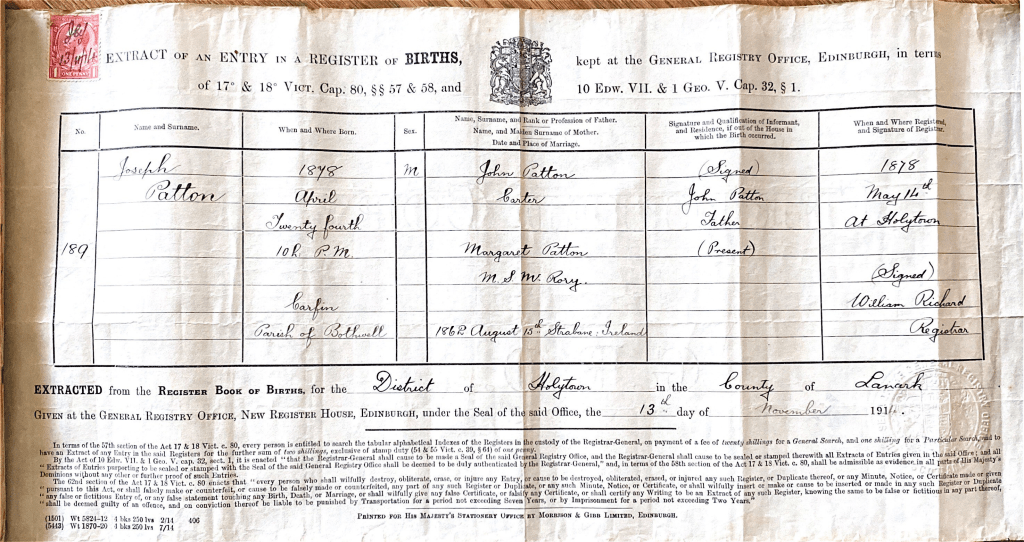 EXTRACT OF AN ENTRY IN A REGISTER OF BIRTHS, kept at the GENERAL REGISTRY OFFICE, EDINBURGH, in terms
of 17° & 18° VICT. CAP. 80, §§ 57 & 58, and 10 EDW. VII. & 1 GEO. V. CAP. 32, § 1.
ONE PENNY
No.
Name and Surname.
When and Where Born.
Sex.
Name, Surname, and Rank or Profession of Father.
Name, and Maiden Surname of Mother.
Date and Place of Marriage.
Signature and Qualification of Informant,
and Residence, if out of the House in
which the Birth occurred.
When and Where Registered,
and Signature of Registrar.
189
Joseph
Patton
1878
April
Twenty fourth
10h. P.M.
Carfin
Parish of Bothwell
M
John Patton
Carter
Margaret Patton
M.S. Mc Rory.
August 15th Strabane, Ireland
(Signed)
John Patton
Father
(Present)
1878
May 14th
At Holytown
(Signed)
William Richard
Registrar
EXTRACTED from the REGISTER BOOK OF BIRTHS, for the District of Holytown in the County of Lanark
GIVEN at the GENERAL REGISTRY OFFICE, NEW REGISTER HOUSE, EDINBURGH, under the SEAL of the said Office, the 13th day of November 1914.
In terms of the 57th section of the Act 17 & 18 Vict. c. 80, every person is entitled to search the tabular alphabetical Indexes of the Registers in the custody of the Registrar-General, on payment of a fee of twenty shillings for a General Search, and one shilling for a Particular Search, and to
have an Extract of any Entry in the said Registers for the further sum of two shillings, exclusive of stamp duty (54 & 55 Vict. c. 39, § 64) of one penny.
By the Act of 10 Edw. VII. & 1 Geo. V. cap. 32, sect. 1, it is enacted "that the Registrar-General shall cause to be made a Seal of the said General Registry Office, and the Registrar-General shall cause to be sealed or stamped therewith all Extracts of Entries given in the said Office; and all
"Extracts of Entries purporting to be sealed or stamped with the Seal of the said General Registry Office shall be deemed to be duly authenticated by the Registrar-General," and, in terms of the 58th section of the Act 17 & 18 Vict. c. 80, shall be admissible as evidence in all parts of His Majesty's
Dominions without any other or further proof of such Entries.
The 62nd section of the Act 17 & 18 Vict. c. 80 enacts that "every person who shall wilfully destroy, obliterate, erase, or injure any Entry, or cause to be destroyed, obliterated, erased, or injured any such Register, or Duplicate thereof, or any Minute, Notice, or Certificate made or given
"pursuant to this Act, or shall falsely make or counterfeit, or cause to be falsely made or counterfeited, any part of any such Register or Duplicate, or any such Minute, Notice, or Certificate, or shall wilfully insert or make or cause to be inserted or made in any such Register or Duplicate
"any false or fictitious Entry of, or any false statement touching any Birth, Death, or Marriage, or shall wilfully give any false Certificate, or falsify any Certificate, or shall certify any Writing to be an Extract of any such Register, knowing the same to be false or fictitious in any part thereof,
"shall be deemed guilty of an offence, and on conviction thereof be liable to be punished by Transportation for a period not exceeding Seven Years, or by Imprisonment for a period not exceeding Two Years."
(1501) Wt 5824-12 4 bks 250 lvs 2/14 406
(5443) Wt 1870-20 4 bks 250 lvs 7/14
PRINTED FOR HIS MAJESTY'S STATIONERY OFFICE BY MORRISON & GIBB LIMITED, EDINBURGH.